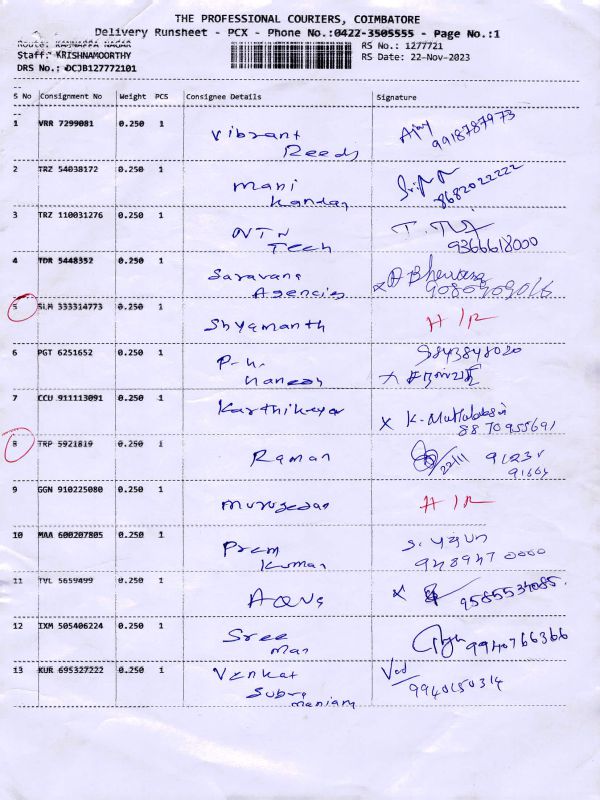 THE PROFESSIONAL COURIERS, COIMBATORE
Delivery Runsheet - PCX - Phone No.:0422-3505555 - Page No.:1
Route: KANNAPPA NAGAR
Staff: KRISHNAMOORTHY
DRS No.: DCJB127772101
RS No.: 1277721
RS Date: 22-Nov-2023
S No Consignment No Weight PCS Consignee Details Signature
1 VRR 7299081 0.250 1 Vibrant Reeds Ajay 9918787973
2 TRZ 54038172 0.250 1 Mani kandan 8682022222
3 TRZ 110031276 0.250 1 NTN Tech 9366618000
4 TDR 5448352 0.250 1 Saravana Agencies
5 SLM 333314773 0.250 1 Shyamanth H/R
6 PGT 6251652 0.250 1 9843848020
7 CCU 911113091 0.250 1 Karthikeyan X K. 8870955691
8 TRP 5921819 0.250 1 Raman 22/11
9 GGN 910225080 0.250 1 Murugesan H/R
10 MAA 600207805 0.250 1 Prem Kumar 948947 0000
11 TVL 5659499 0.250 1 9585534085.
12 IXM 505406224 0.250 1 Sree 9940766366
13 KUR 695327222 0.250 1 Venkat Subra maniam 9940150314